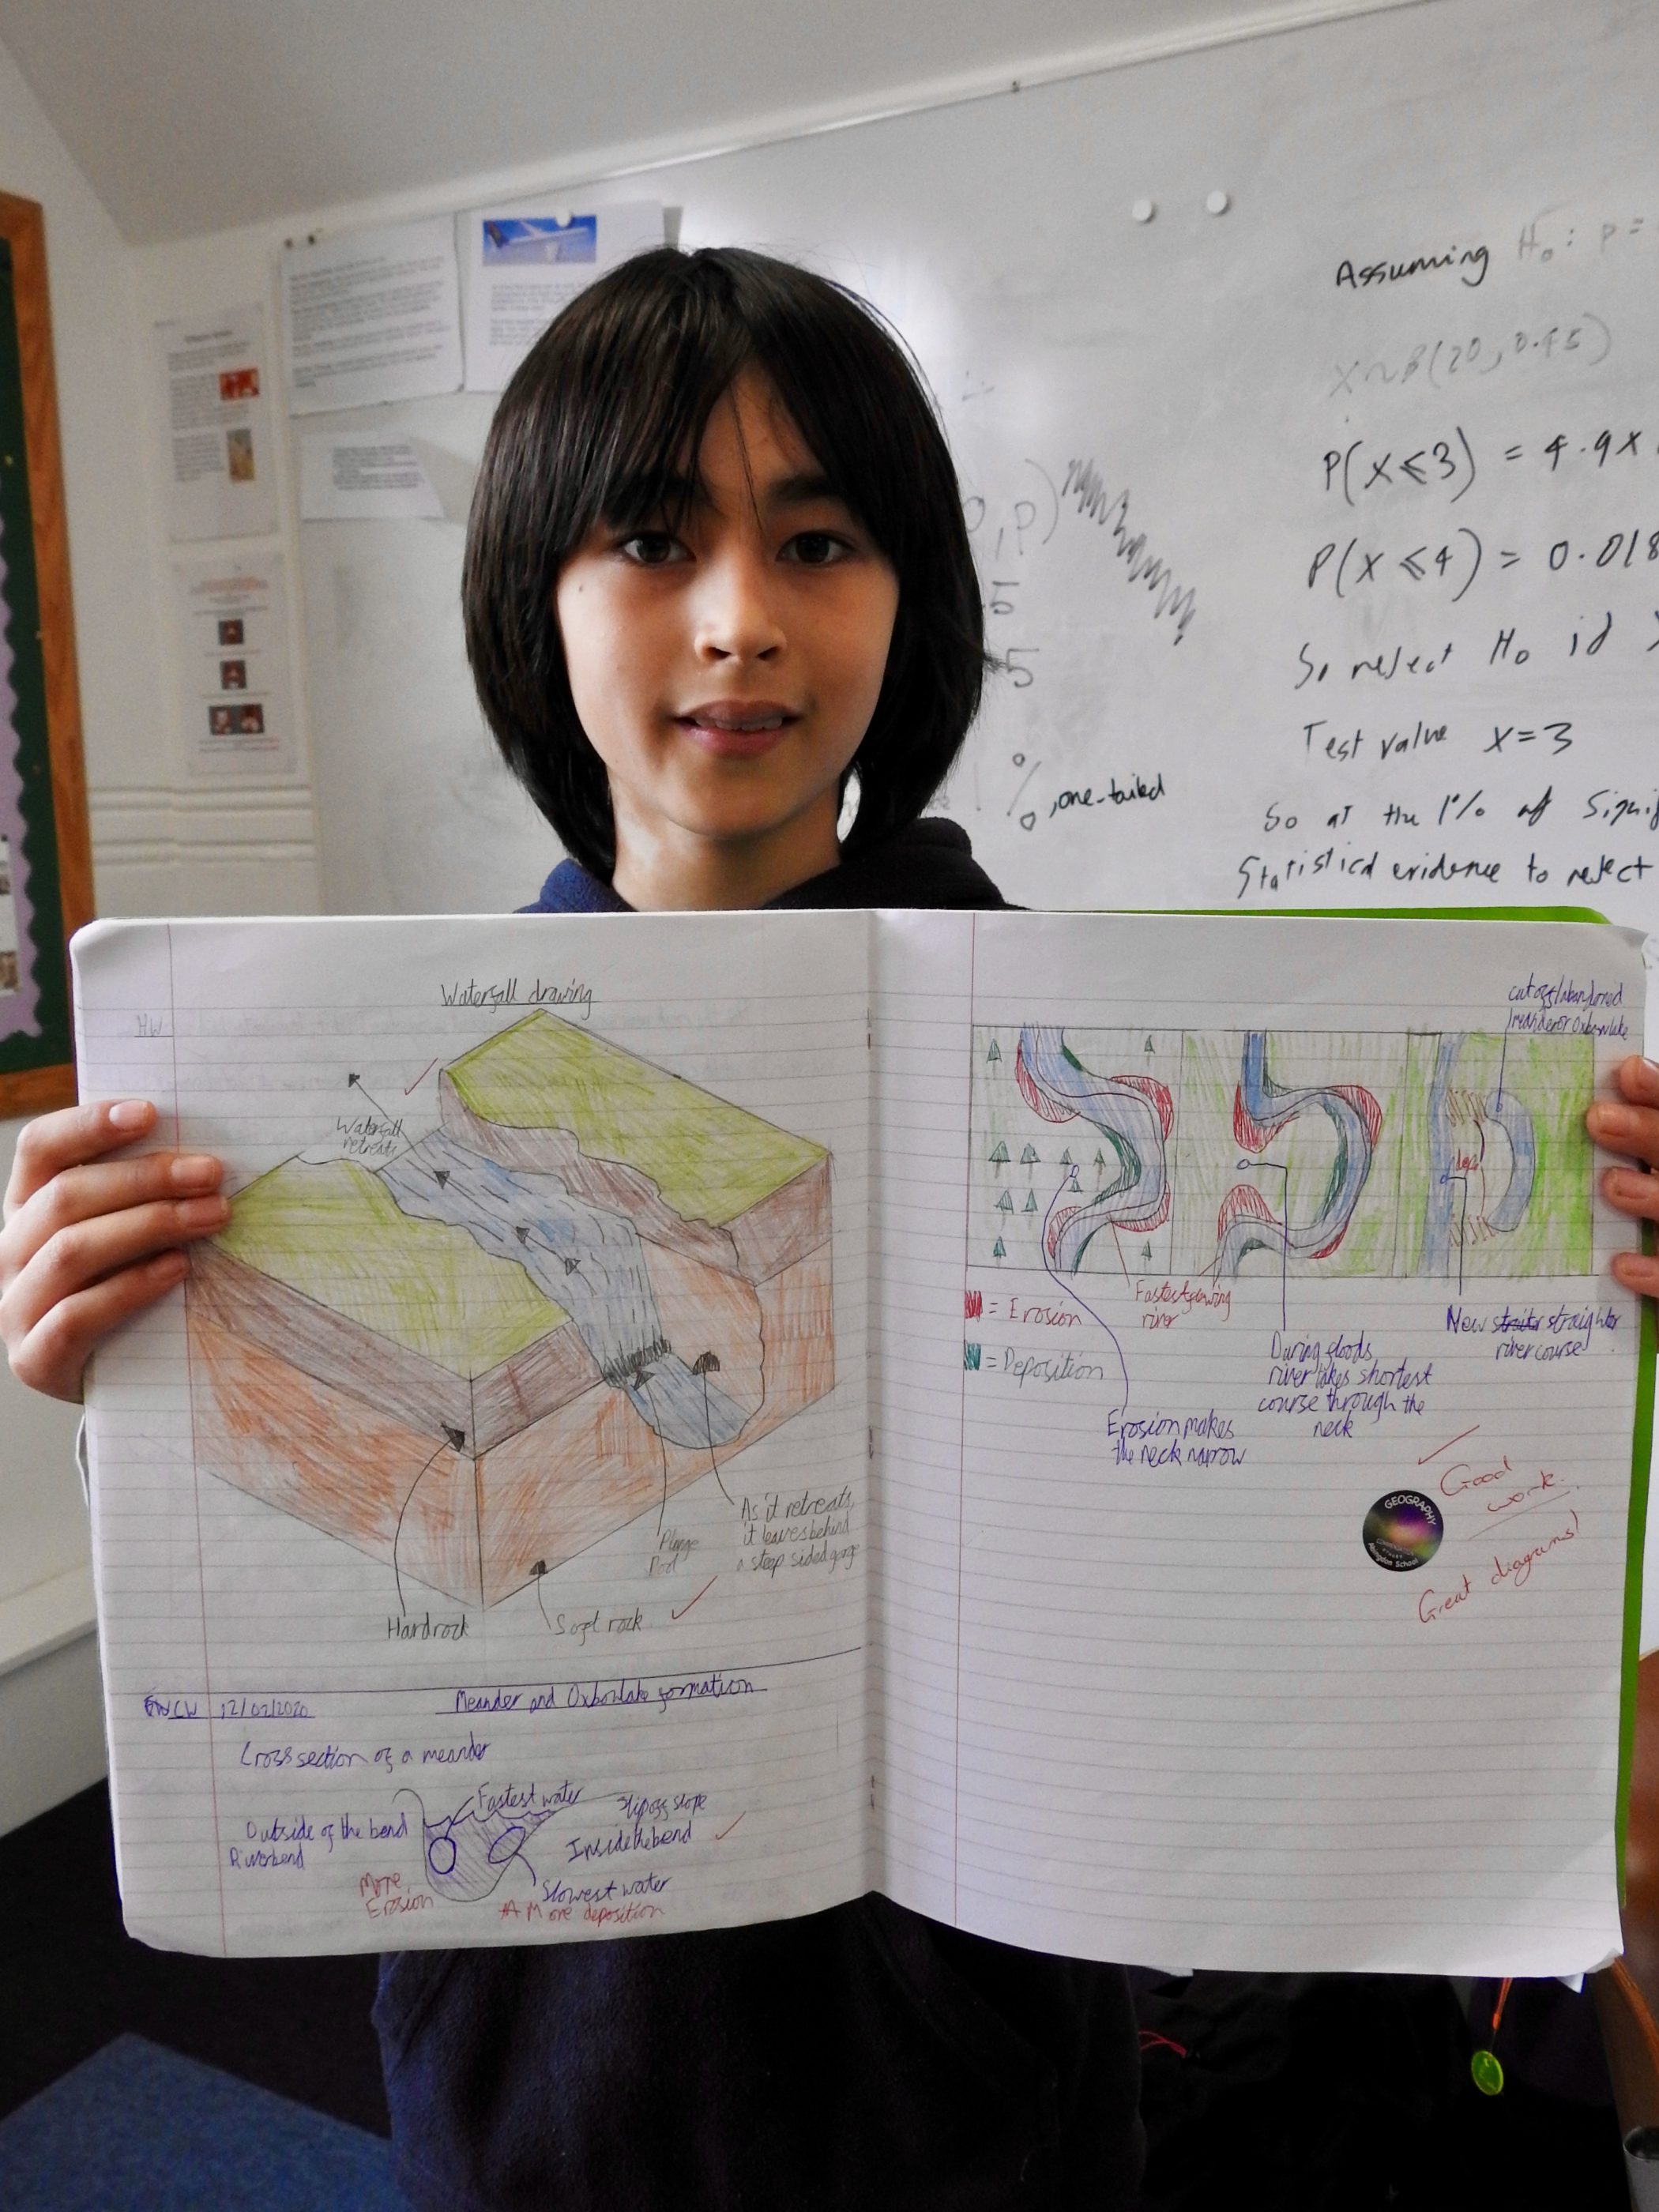 Assuming H₀: p =
X~B(20, 0.45)
P(X⩽3) = 4.9x
P(X⩽4) = 0.018
So reject H₀ id
Test value x=3
So at the 1% of Signif
Statistical evidence to reject
0,p)
.5
5
1% , one-tailed
HW
Waterfall drawing
Waterfall
retreats
Plunge
Pool
As it retreats,
it leaves behind
a steep sided gorge
Hard rock
Soft rock
CW 12/02/2020 Meander and Oxbowlake formation
Cross section of a meander
Fastest water
Outside of the bend
Riverbend
More
Erosion
Slip off slope
Inside the bend
Slowest water
More deposition
cut off/abandoned
meander or Oxbow lake
dep
= Erosion
= Deposition
Fastest flowing
river
Erosion makes
the neck narrow
During floods
river takes shortest
course through the
neck
New straighter
river course
Good
work.
Great diagrams!
GEOGRAPHY
Abingdon School